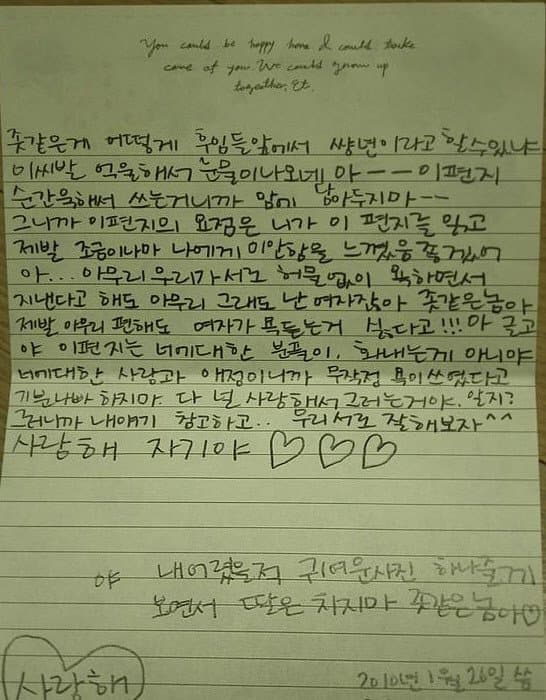 You could be happy here I could take
care of you. We could grow up
together, Et.
좃같은게 어떻게 후임들앞에서 썅년이라고 할수있냐
이씨발 억울해서 눈물이나오네 아ㅡㅡ 이편지
순간욱해서 쓰는거니까 맘에 담아두지마ㅡㅡ
그니까 이편지의 요점은 니가 이 편지를 읽고
제발 조금이나마 나에게 미안함을 느꼈음 좋겠어
아... 아무리 우리가서로 허물없이 욕하면서
지낸다고 해도 아무리 그래도 난 여자잖아 좃같은놈아
제발 아무리 편해도 여자가 욕듣는거 싫다고!!! 아 글고
야 이편지는 너에대한 분풀이, 화내는게 아니야
너에대한 사랑과 애정이니까 무작정 욕이쓰였다고
기분나빠 하지마. 다 널 사랑해서 그러는거야. 알지?
그러니까 내얘기 참고하고.. 우리서로 잘해보자^^
사랑해 자기야 ♡♡♡
야 내어렸을적 귀여운사진 하나줄게
보면서 딸은 치지마 좃같은놈아♡
사랑해
2010년 1월 26일 씀